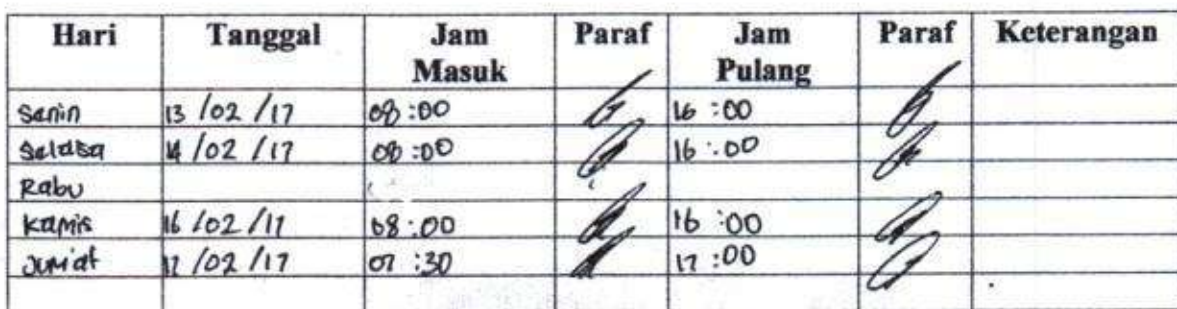 Hari Tanggal Jam Masuk Paraf Jam Pulang Paraf Keterangan
Senin 13/02/17 08:00 16:00
Selasa 14/02/17 08:00 16:00
Rabu
Kamis 16/02/17 08:00 16:00
Jum'at 17/02/17 07:30 17:00